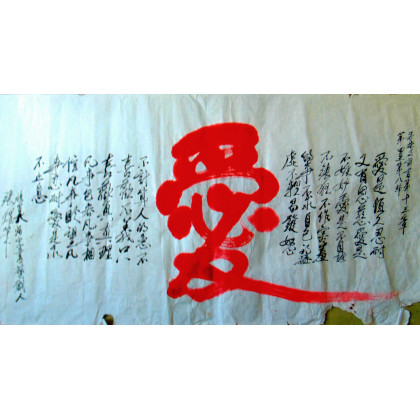 愛是恆久忍耐
又有恩慈愛是
不嫉妒愛是不自誇
不張狂不作害羞
的事不求自己的益
處不輕易發怒
愛
不計算人的惡不
喜歡不義只
喜歡真理
凡事包容凡事相
信凡事盼望凡
事忍耐愛是永
不止息